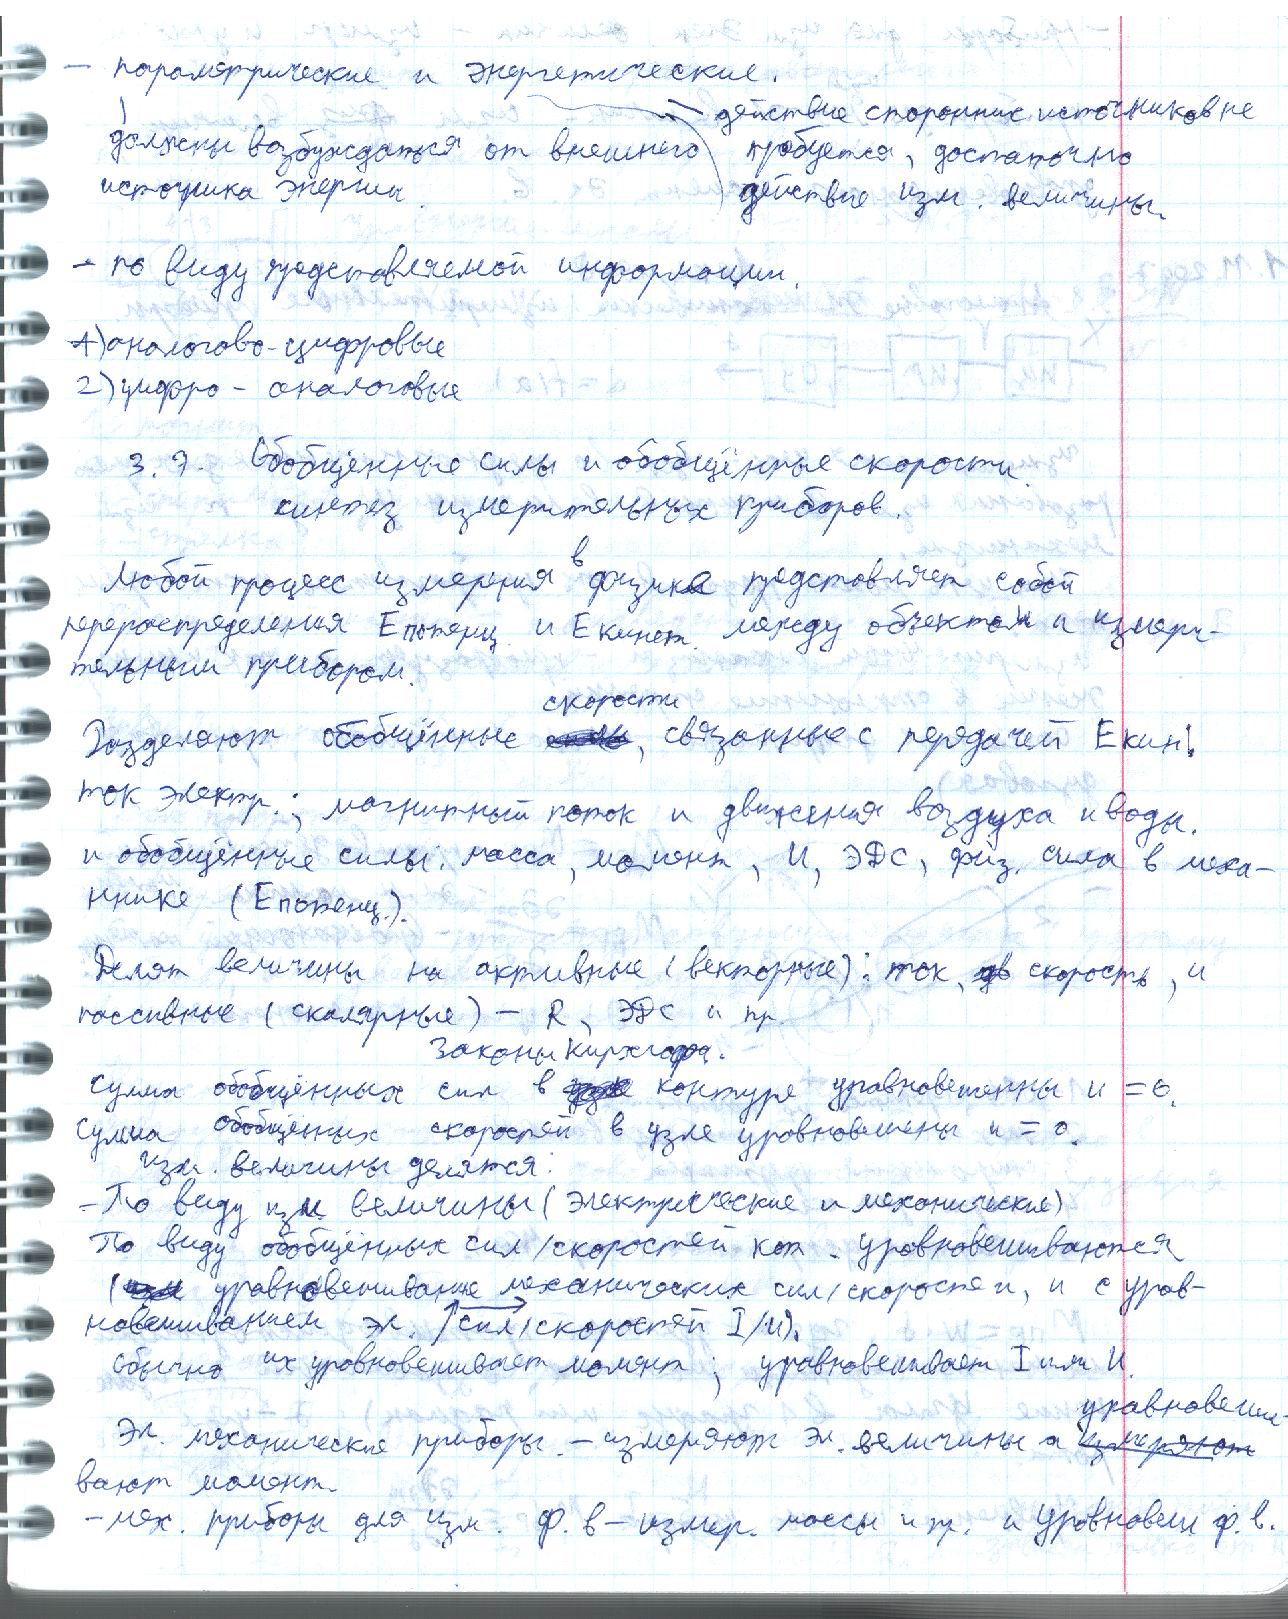 - параметрические и энергетические.
действие сторонних источников не
должны возбуждаться от внешнего требуется, достаточно
источника энергии. действие изм. величины.
- по виду представляемой информации.
1) аналогово-цифровые
2) цифро-аналоговые
3.7. Обобщённые силы и обобщённые скорости.
синтез измерительных приборов.
в
Любой процесс измерения физике представляет собой
перераспределения Eпотенц. и Eкинет. между объектом и измери-
тельным прибором.
скорости
Разделяют обобщённые , связанные с передачей Eкин:
ток электр.; магнитный поток и движения воздуха и воды.
и обобщённые силы: масса, момент, U, ЭДС, физ. сила в меха-
нике (Eпотенц.).
Делят величины на активные (векторные): ток, скорость, и
пассивные (скалярные) - R, ЭДС и пр.
Законы Кирхгофа.
Сумма обобщённых сил в контуре уравновешенны и = 0.
Сумма обобщённых скоростей в узле уравновешены и = 0.
Изм. величины делятся:
- По виду изм величины (электрические и механические)
По виду обобщённых сил/скоростей кот. уравновешиваются
( уравновешивание механических сил/скоростей, и с урав-
новешиванием эл. сил/скоростей I/U).
Обычно их уравновешивает момент; уравновешивает I или U.
уравновеши-
Эл. механические приборы - измеряют эл. величины а измеряют
вают момент.
- мех. приборы для изм. ф.в - измер. массы и пр. и уравновеш ф.в.